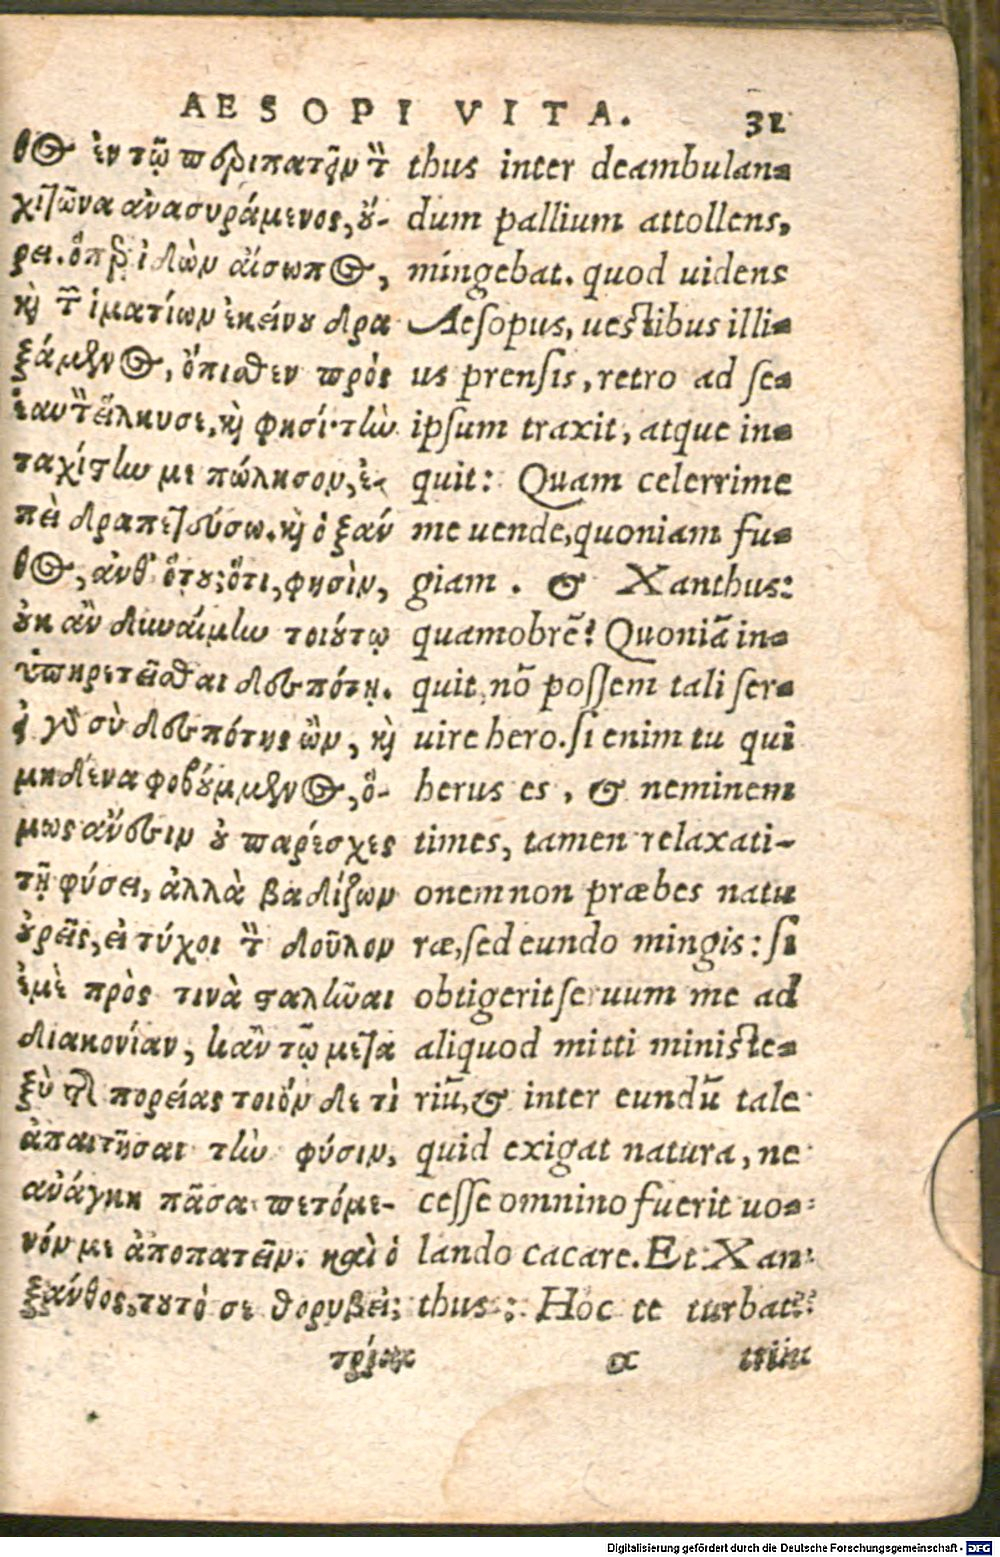 AESOPI VITA. 31
θος ἐν τῷ περιπατεῖν τὸ
χιτῶνα ἀνασυράμενος, ȣ́-
ρει. ὅπερ ἰδὼν αἴσωπος,
κỳ τῶν ἱματίων ἐκείνȣ δρα
ξάμενος, ὄπισθεν πρὸς
ἑαυτὸν εἵλκυσε, κỳ φησί· τὴν
ταχίστην με πώλησον, ἐ-
πεὶ δραπετεύσω. κỳ ὁ ξάν
θος, ἀνθ' ὅτȣ; ὅτι, φησὶν,
ȣκ ἂν δυναίμην τοιȣ́τῳ
ὑπηρετεῖσθαι δεσπότῃ.
εἰ γὰρ σὺ δεσπότης ὢν, κỳ
μηδένα φοβȣ́μμενος, ὅ-
μως ἄνεσιν ȣ παρέσχες
τῇ φύσει, ἀλλὰ βαδίζων
ȣρεῖς, εἰ τύχοι τὸν δοῦλον
ἐμὲ πρὸς τινὰ σταλῆναι
διακονίαν, κἂν τῷ μετα
ξὺ τῆς πορείας τοιόνδε τὶ
ἀπαιτῆσαι τὴν φύσιν,
ἀνάγκη πᾶσα πετόμε-
νόν με ἀποπατεῖν. καὶ ὁ
ξάνθος, τȣτό σε θορυβεῖ;
thus inter deambulan-
dum pallium attollens,
mingebat. quod uidens
Aesopus, uestibus illi-
us prensis, retro ad se-
ipsum traxit, atque in-
quit: Quam celerrime
me uende, quoniam fu-
giam. & Xanthus:
quamobrē? Quoniā in-
quit, nō possem tali ser-
uire hero. si enim tu qui
herus es, & neminem
times, tamen relaxati-
onem non præbes natu
ræ, sed eundo mingis: si
obtigerit seruum me ad
aliquod mitti ministe-
riū, & inter eundū tale
quid exigat natura, ne
cesse omnino fuerit uo-
lando cacare. Et Xan-
thus: Hoc te turbat?
α